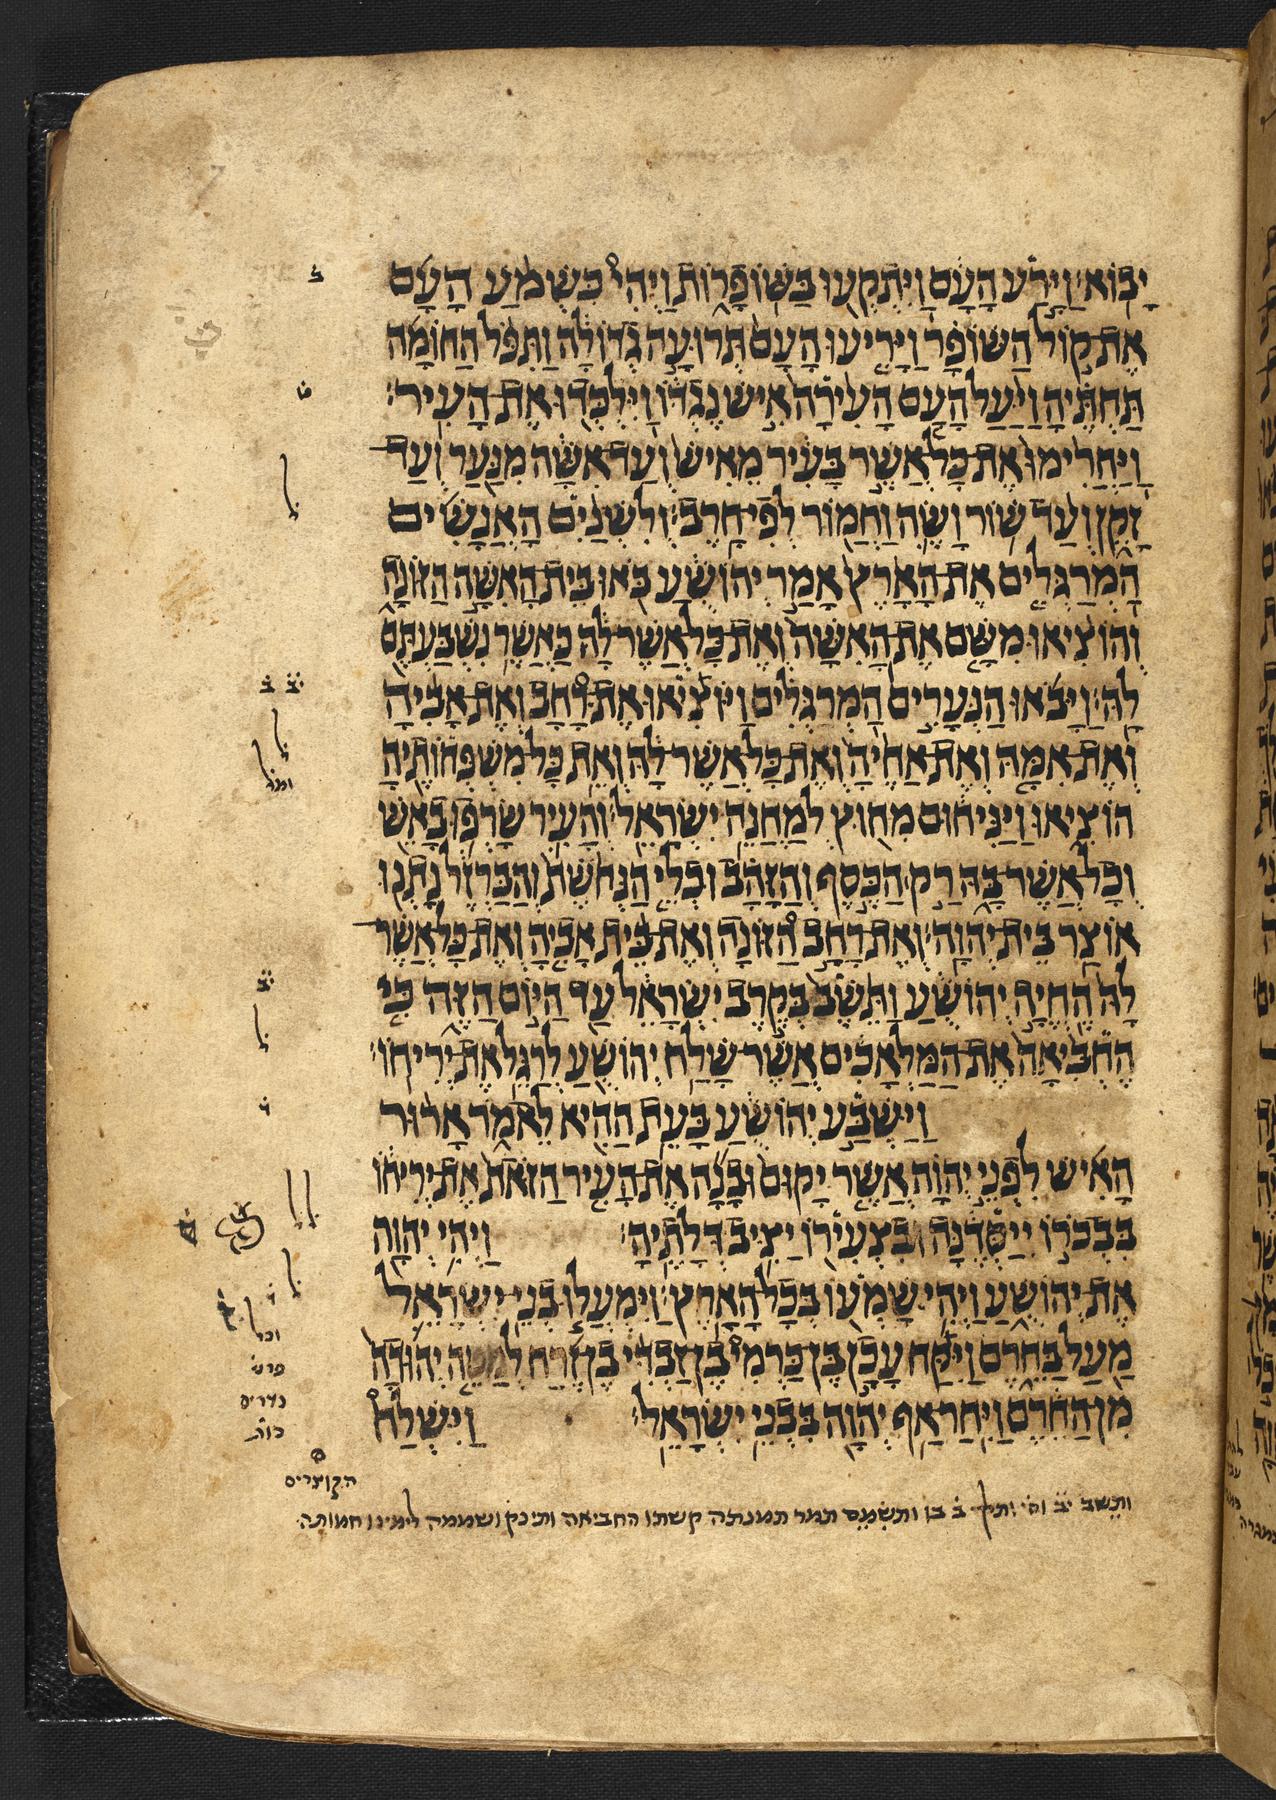 יָבוֹא׃ וַיָּרַע הָעָם וַיִּתְקְעוּ בַּשּׁוֹפָרוֹת וַיְהִי כִשְׁמֹעַ הָעָם
אֶת קוֹל הַשּׁוֹפָר וַיָּרִיעוּ הָעָם תְּרוּעָה גְדוֹלָה וַתִּפֹּל הַחוֹמָה
תַּחְתֶּיהָ וַיַּעַל הָעָם הָעִירָה אִישׁ נֶגְדּוֹ וַיִּלְכְּדוּ אֶת הָעִיר׃
וַיַּחֲרִימוּ אֶת כָּל אֲשֶׁר בָּעִיר מֵאִישׁ וְעַד אִשָּׁה מִנַּעַר וְעַד
זָקֵן וְעַד שׁוֹר וָשֶׂה וַחֲמוֹר לְפִי חָרֶב׃ וְלִשְׁנַיִם הָאֲנָשִׁים
הַמְרַגְּלִים אֶת הָאָרֶץ אָמַר יְהוֹשֻׁעַ בֹּאוּ בֵּית הָאִשָּׁה הַזּוֹנָה
וְהוֹצִיאוּ מִשָּׁם אֶת הָאִשָּׁה וְאֶת כָּל אֲשֶׁר לָהּ כַּאֲשֶׁר נִשְׁבַּעְתֶּם
לָהּ׃ וַיָּבֹאוּ הַנְּעָרִים הַמְרַגְּלִים וַיּוֹצִיאוּ אֶת רָחָב וְאֶת אָבִיהָ
וְאֶת אִמָּהּ וְאֶת אַחֶיהָ וְאֶת כָּל אֲשֶׁר לָהּ וְאֵת כָּל מִשְׁפְּחוֹתֶיהָ
הוֹצִיאוּ וַיַּנִּיחוּם מִחוּץ לְמַחֲנֵה יִשְׂרָאֵל׃ וְהָעִיר שָׂרְפוּ בָאֵשׁ
וְכָל אֲשֶׁר בָּהּ רַק הַכֶּסֶף וְהַזָּהָב וּכְלֵי הַנְּחֹשֶׁת וְהַבַּרְזֶל נָתְנוּ
אוֹצַר בֵּית יְהוָה׃ וְאֶת רָחָב הַזּוֹנָה וְאֶת בֵּית אָבִיהָ וְאֶת כָּל אֲשֶׁר
לָהּ הֶחֱיָה יְהוֹשֻׁעַ וַתֵּשֶׁב בְּקֶרֶב יִשְׂרָאֵל עַד הַיּוֹם הַזֶּה כִּי
הֶחְבִּיאָה אֶת הַמַּלְאָכִים אֲשֶׁר שָׁלַח יְהוֹשֻׁעַ לְרַגֵּל אֶת יְרִיחוֹ׃
וַיַּשְׁבַּע יְהוֹשֻׁעַ בָּעֵת הַהִיא לֵאמֹר אָרוּר
הָאִישׁ לִפְנֵי יְהוָה אֲשֶׁר יָקוּם וּבָנָה אֶת הָעִיר הַזֹּאת אֶת יְרִיחוֹ
בִּבְכֹרוֹ יְיַסְּדֶנָּה וּבִצְעִירוֹ יַצִּיב דְּלָתֶיהָ׃ וַיְהִי יְהוָה
אֶת יְהוֹשֻׁעַ וַיְהִי שָׁמְעוֹ בְּכָל הָאָרֶץ׃ וַיִּמְעֲלוּ בְנֵי יִשְׂרָאֵל
מַעַל בַּחֵרֶם וַיִּקַּח עָכָן בֶּן כַּרְמִי בֶן זַבְדִּי בֶן זֶרַח לְמַטֵּה יְהוּדָה
מִן הַחֵרֶם וַיִּחַר אַף יְהוָה בִּבְנֵי יִשְׂרָאֵל׃ וַיִּשְׁלַח
ב
ט
יב ב
ומל
יב
ו
וכל
פרט
נדרים
כות
הקוצרים
ותשב יב וס ב בו ותשמם תמר תמנתה קשתו החביאה ותינק ושממה לימינו חמותה